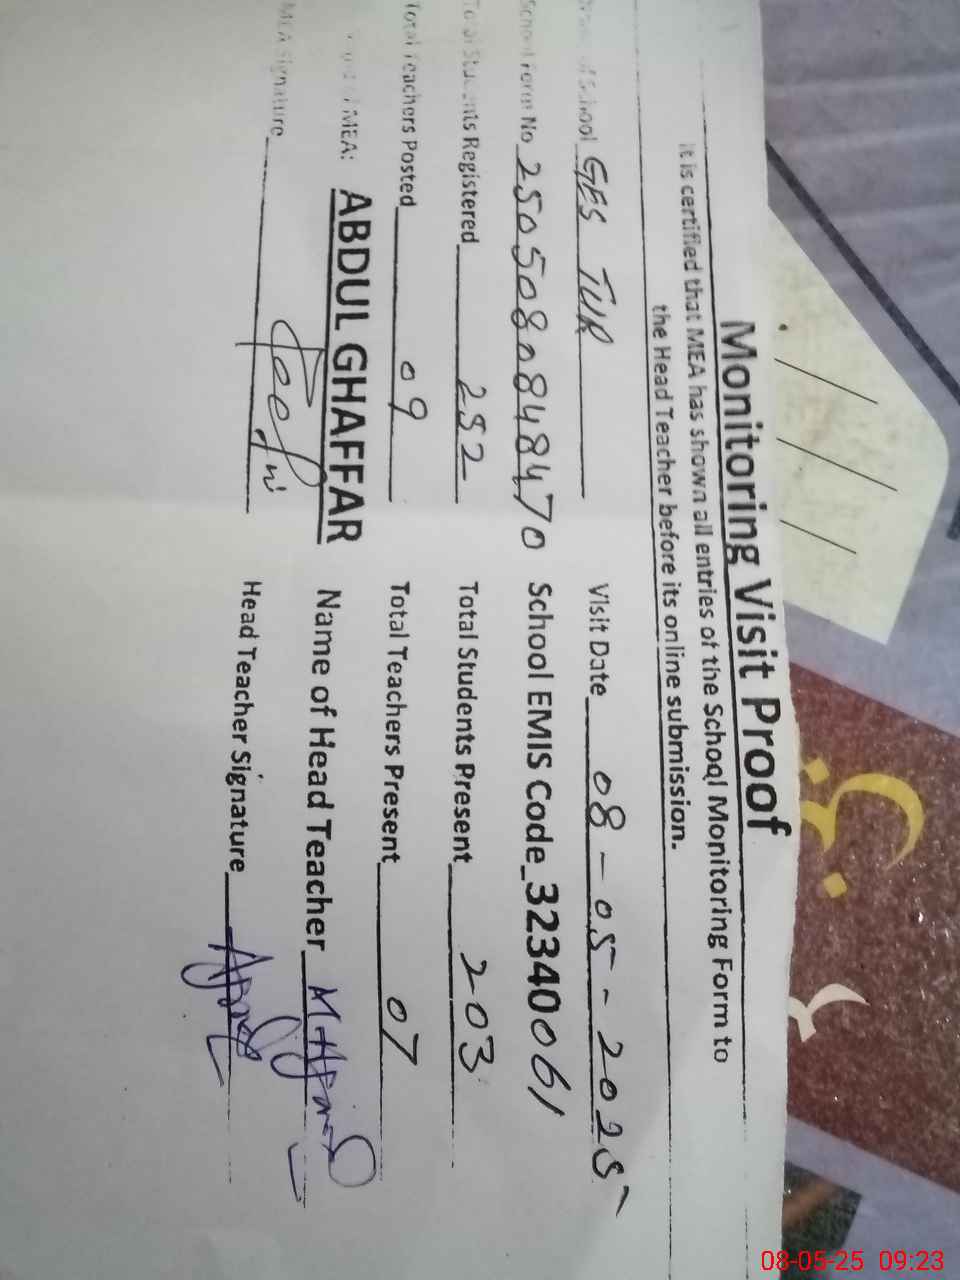 Monitoring Visit Proof
It is certified that MEA has shown all entries of the School Monitoring Form to
the Head Teacher before its online submission.
of School GES TUR Visit Date 08-05-2025
School Form No 2505080848470 School EMIS Code 32340061
Total Students Registered 252 Total Students Present 203
Total Teachers Posted 09 Total Teachers Present 07
of MEA: ABDUL GHAFFAR Name of Head Teacher
MEA Signature Head Teacher Signature
08-05-25 09:23